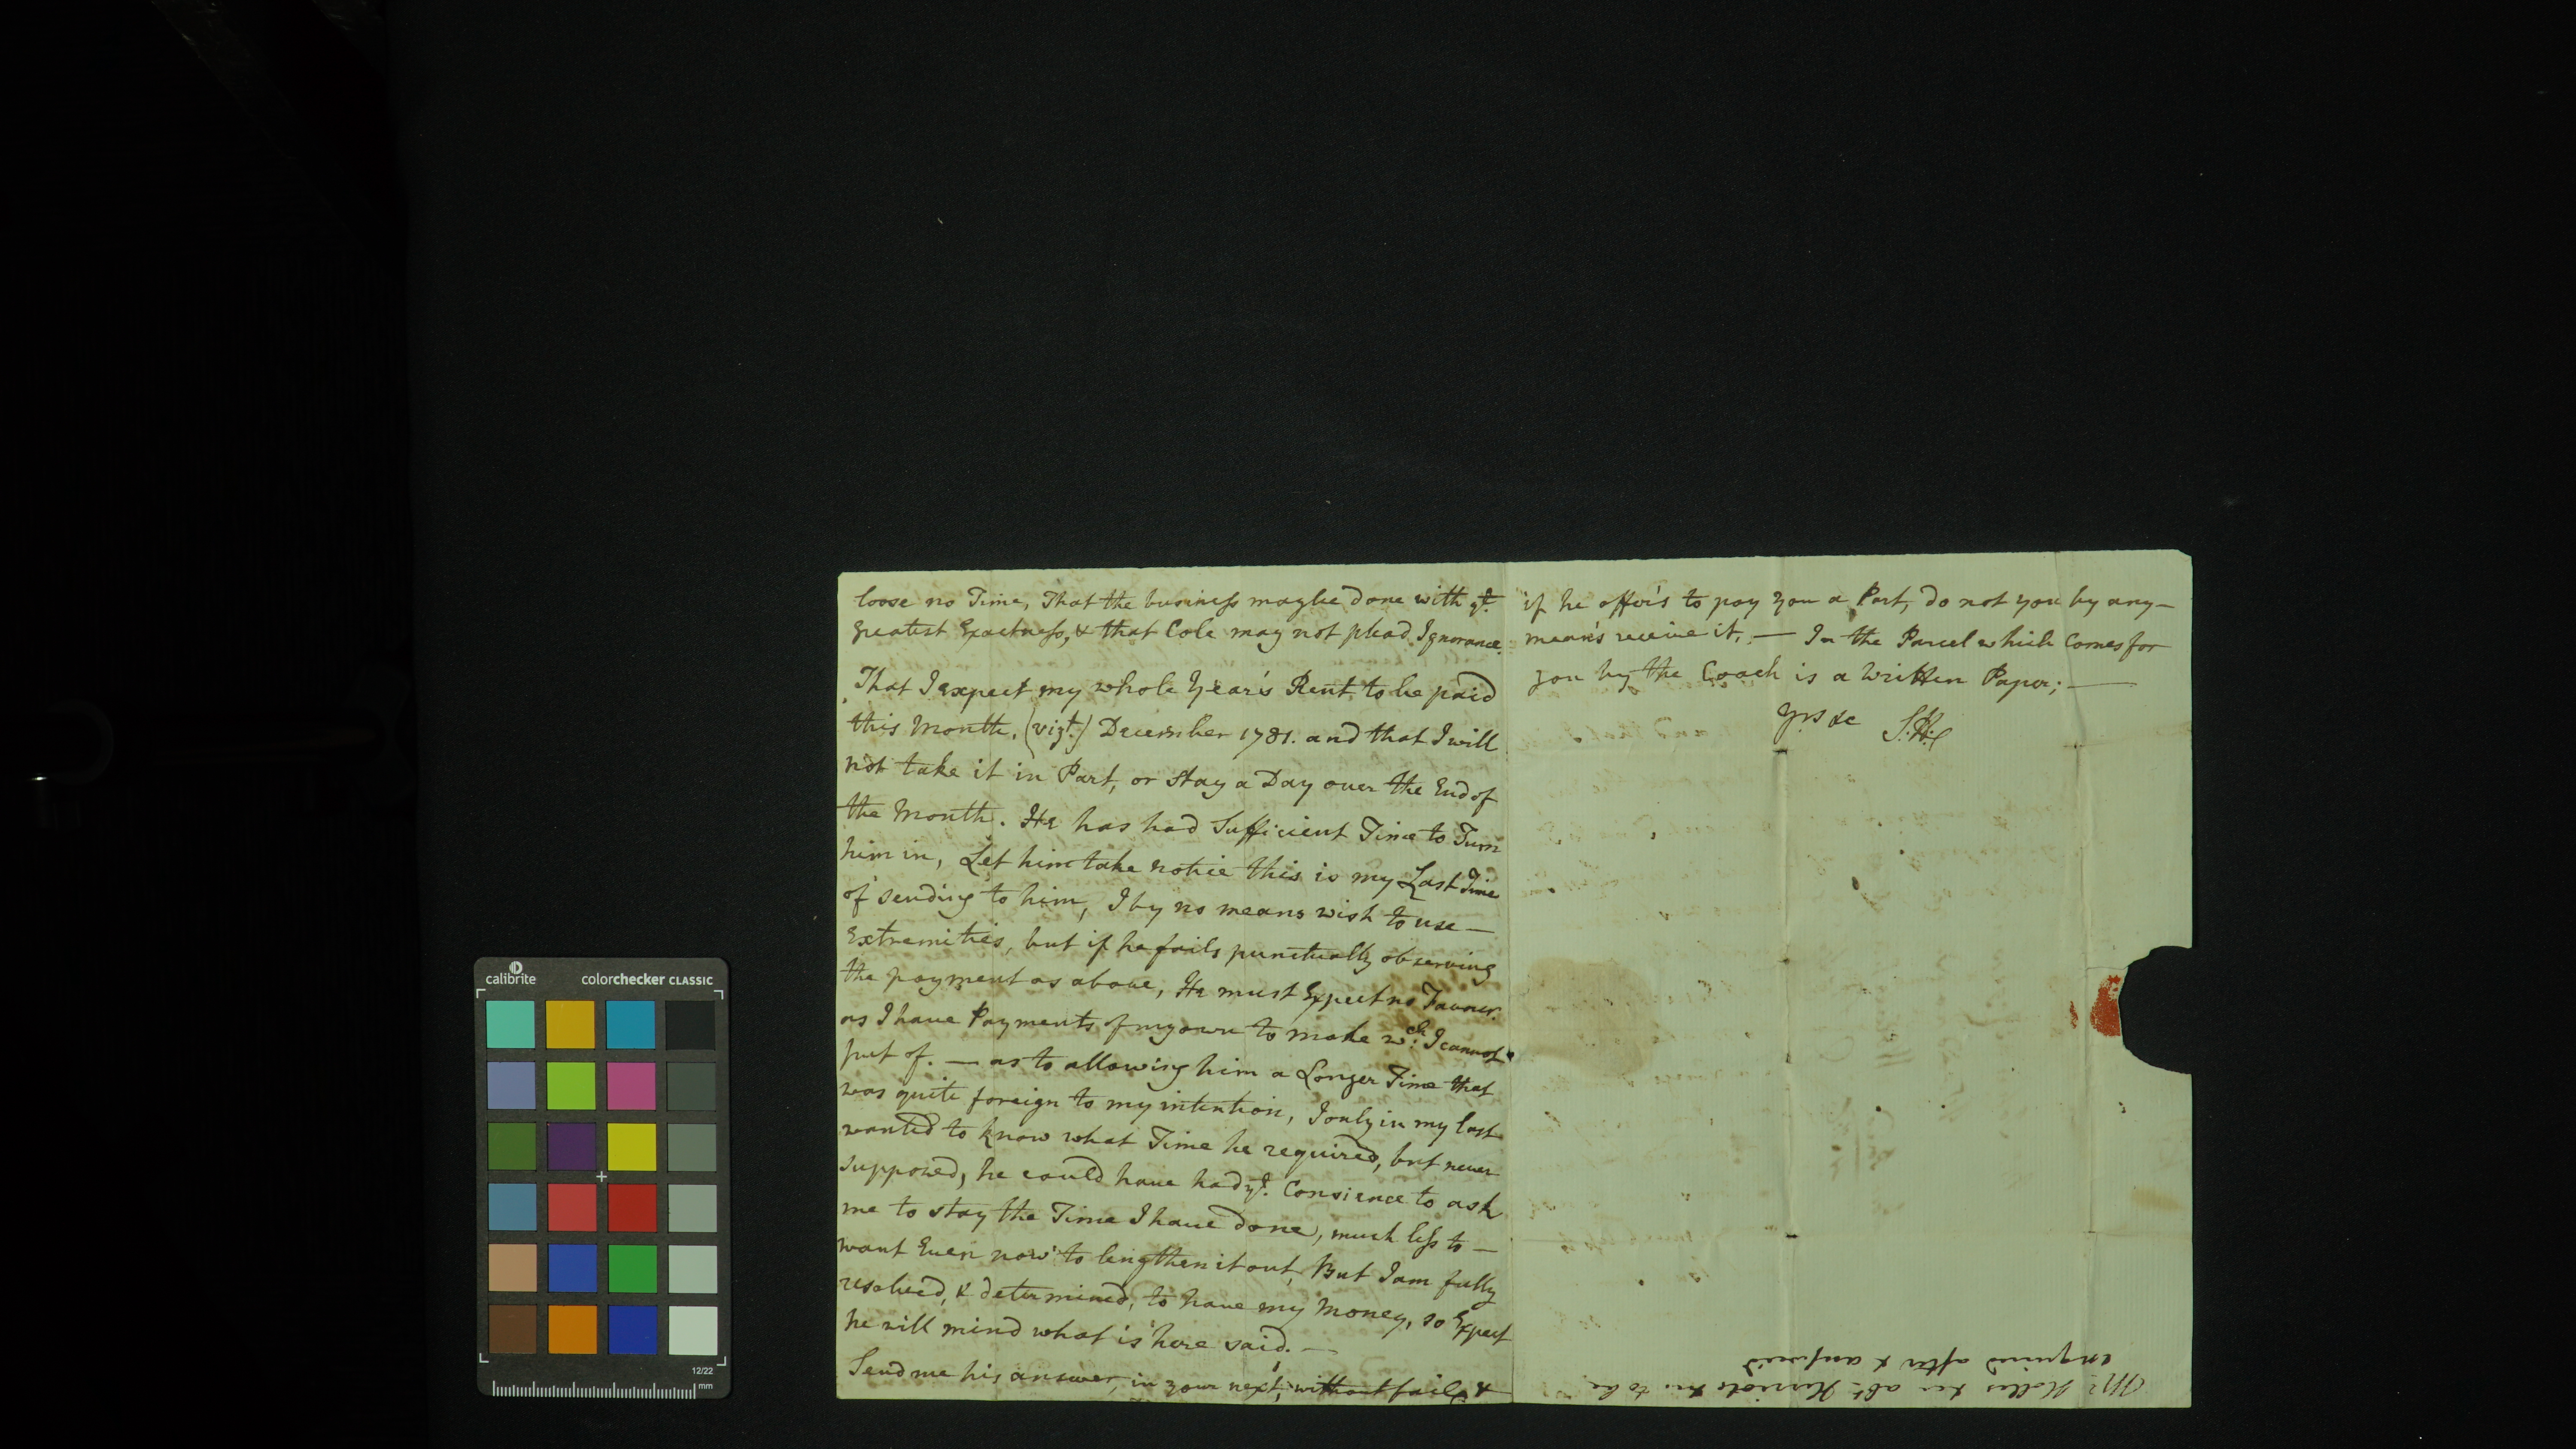 loose no Time, That the business maybe done with ye.
greatest Exactness, & that Cole may not plead Ignorance.
That I expect my whole Year's Rent to be paid
this Month, (vizt.) December 1781. and that I will
not take it in Part, or stay a Day over the End of
the Month. He has had Sufficient Time to Turn
him in, Let him take notice this is my Last Time
of sending to him, I by no means wish to use —
Extremities, but if he fails punctually observing
the payment as above, He must Expect no Favour.
as I have Payments of my own to make wch. I cannot
put of. — as to allowing him a Longer Time that
was quite foreign to my intention, I only in my last
wanted to know what Time he required, but never
supposed, he could have had ye. Consience to ask
me to stay the Time I have done, much less to —
want Even now to lengthen it out, But I am fully
resolved, & determined, to have my Money, so Expect
he will mind what is here said. —
Send me his answer, in your next, without fail, &
if he offer's to pay you a Part, do not you by any —
mean's receive it. — In the Parcel which Comes for
you by the Coach is a Written Paper; —
Yrs &c S:H:
Mr. abt. to be
enquired after & answered
calibrite
colorchecker CLASSIC
12/22
mm